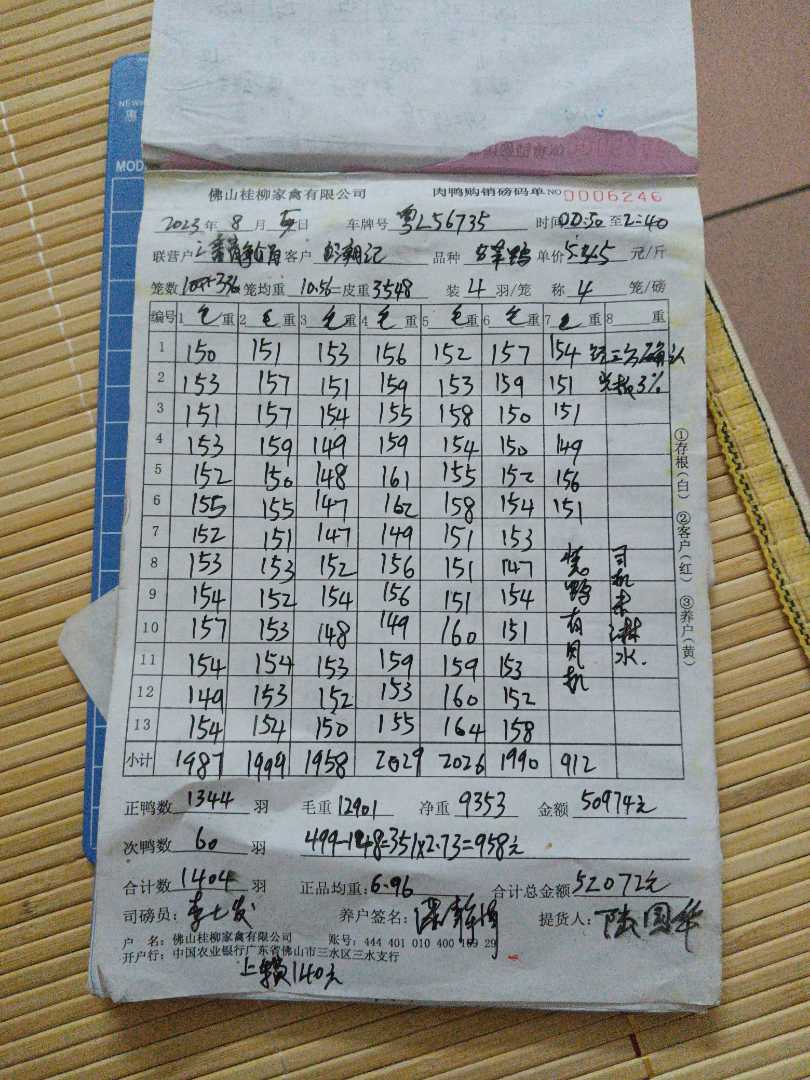 佛山桂柳家禽有限公司 肉鸭购销磅码单 NO 0006246
2023年 8月 5日 车牌号 粤L56735 时间 00:50 至 2:40
联营户 客户 品种 单价 5.45 元/斤
笼数 336 笼均重 10.56 =皮重 3548 装 4 羽/笼 称 4 笼/磅
编号 1 毛重 2 毛重 3 毛重 4 毛重 5 毛重 6 毛重 7 毛重 8 重
1 150 151 153 156 152 157 154 确认
2 153 157 151 159 153 159 151 3%
3 151 157 154 155 158 150 151
4 153 159 149 159 154 150 149
5 152 150 148 161 155 152 156
6 155 155 147 162 158 154 151
7 152 151 147 149 151 153
8 153 153 152 156 151 147
9 154 152 154 156 151 154
10 157 153 148 149 160 151
11 154 154 153 159 159 153
12 149 153 152 153 160 152
13 154 154 150 155 164 158
鸭有风机
司机未淋水.
小计 1987 1999 1958 2029 2026 1990 912
①存根(白) ②客户(红) ③养户(黄)
正鸭数 1344 羽 毛重 12901 净重 9353 金额 50974元
次鸭数 60 羽 499-148=351×2.73=958元
合计数 1404 羽 正品均重: 6.96 合计总金额 52072元
司磅员: 李七发 养户签名: 提货人: 陆国华
户 名: 佛山桂柳家禽有限公司 账号: 444 401 010 400 169 29
开户行: 中国农业银行广东省佛山市三水区三水支行
140元
NEW
惠
MOD